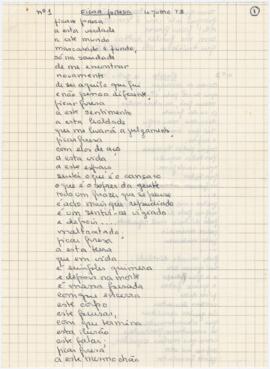 nº1 Ficar presa 4 julho 78 1
ficar presa
a esta verdade
a este mundo
marcado e fundo,
só na saudade
de me encontrar
novamente
de ser aquilo que fui
e não pensa diferente.
ficar presa
a este sentimento
a esta lealdade
que me levará a julgamento.
ficar presa
com elos de aço
a esta vida
a este espaço
sentir o que é o cansaço
o que é o sofrer da gente
tudo um prazer que se quer
é acto mais que repudiado
é um sentir-se vigiado
e depois...
maltratado.
ficar presa
a esta terra
que em vida
é simples quimera
e depois na morte
é mama pesada
com que encerra
este corpo
este pensar,
com que termina
esta ilusão
este falar,
ficar presa
a este mesmo chão